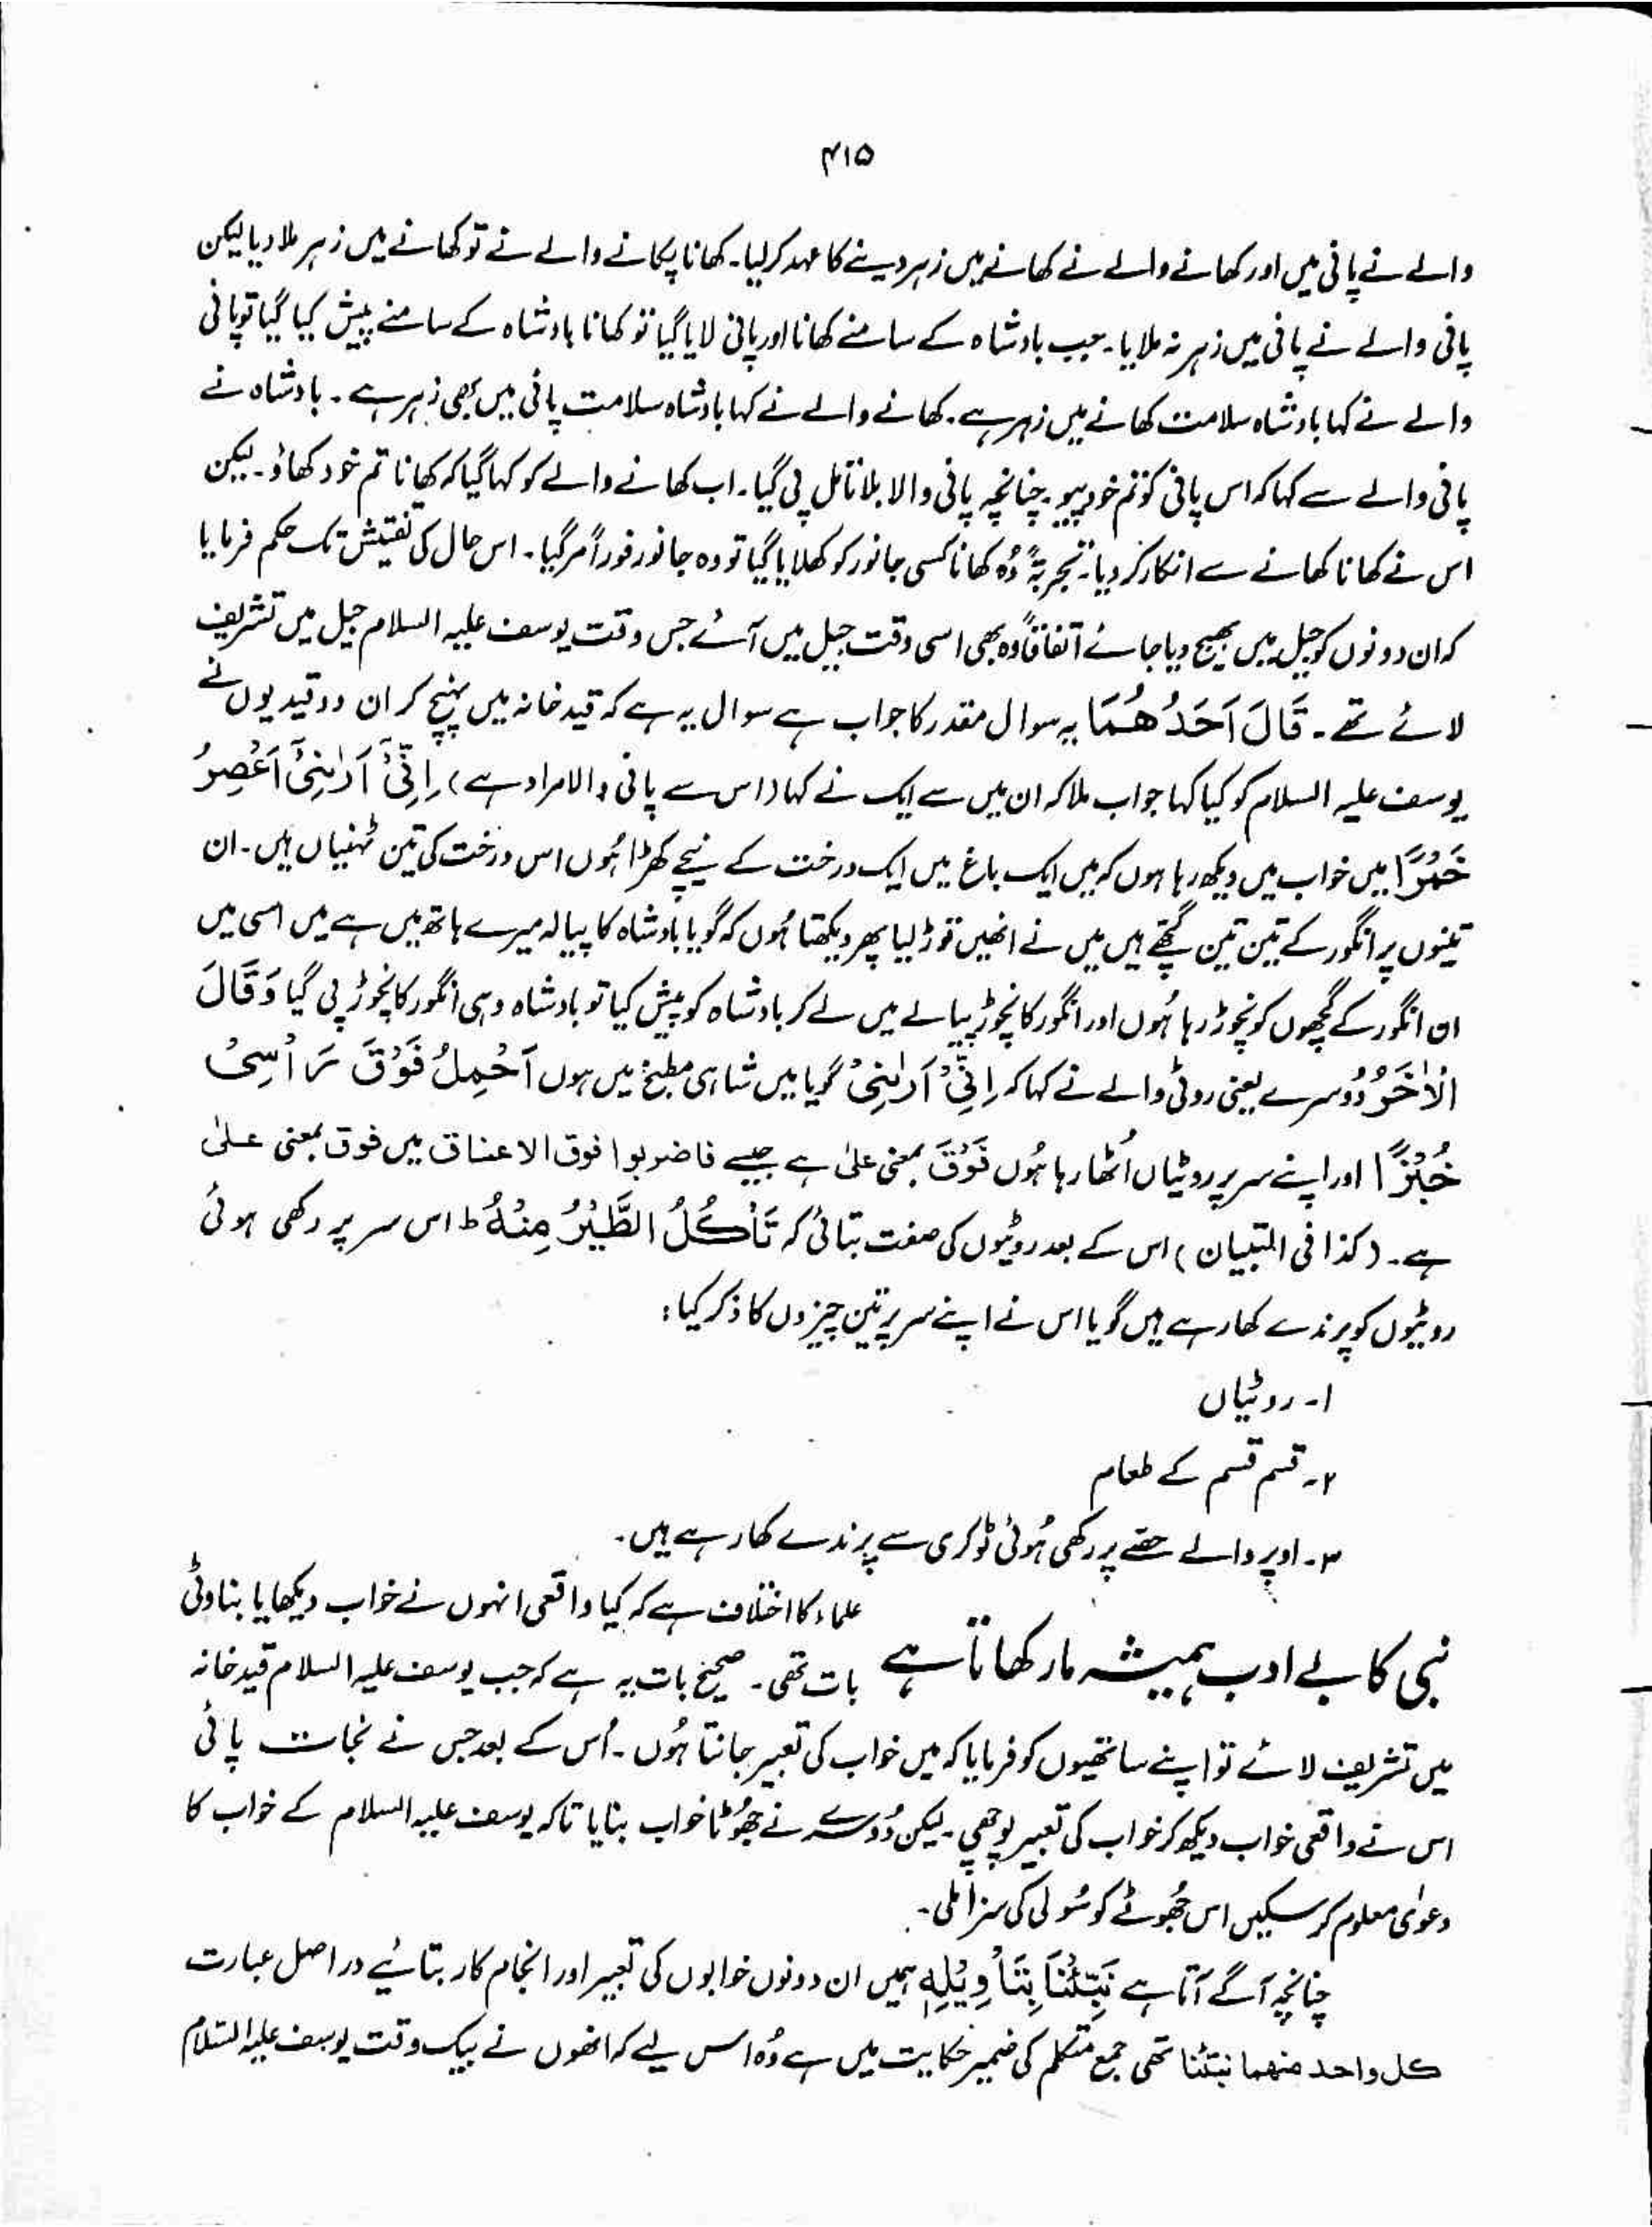 ۴۱۵
والے نے پانی میں اور کھانے والے نے کھانے میں زہر دینے کا عہد کر لیا۔ کھانا پکانے والے نے تو کھانے میں زہر ملا دیا لیکن
پانی والے نے پانی میں زہر نہ ملایا۔ جب بادشاہ کے سامنے کھانا اور پانی لایا گیا تو کھانا بادشاہ کے سامنے پیش کیا گیا تو پانی
والے نے کہا بادشاہ سلامت کھانے میں زہر ہے۔ کھانے والے نے کہا بادشاہ سلامت پانی میں بھی زہر ہے۔ بادشاہ نے
پانی والے سے کہا کہ اس پانی کو تم خود پیو۔ چنانچہ پانی والا بلا تامل پی گیا۔ اب کھانے والے کو کہا گیا کہ کھانا تم خود کھاؤ۔ لیکن
اس نے کھانا کھانے سے انکار کر دیا۔ تجربۃً وُہ کھانا کسی جانور کو کھلایا گیا تو وہ جانور فوراً مر گیا۔ اس حال کی تفتیش تک حکم فرمایا
کہ ان دونوں کو جیل میں بھیج دیا جائے اتفاقاً وہ بھی اسی وقت جیل میں آئے جس وقت یوسف علیہ السلام جیل میں تشریف
لائے تھے۔ قَالَ اَحَدُهُمَا یہ سوال مقدر کا جواب ہے سوال یہ ہے کہ قید خانہ میں پہنچ کر ان دو قیدیوں نے
یوسف علیہ السلام کو کیا کہا جواب ملا کہ ان میں سے ایک نے کہا (اس سے پانی والا مراد ہے) اِنِّیْٓ اَرٰىنِیْٓ اَعْصِرُ
خَمْرًا میں خواب میں دیکھ رہا ہوں کہ میں ایک باغ میں ایک درخت کے نیچے کھڑا ہُوں اس درخت کی تین ٹہنیاں ہیں۔ ان
تینوں پر انگور کے تین تین گچھے ہیں میں نے انھیں توڑ لیا پھر دیکھتا ہُوں کہ گویا بادشاہ کا پیالہ میرے ہاتھ میں ہے میں اسی میں
ان انگور کے گچھوں کو نچوڑ رہا ہُوں اور انگور کا نچوڑ پیالے میں لے کر بادشاہ کو پیش کیا تو بادشاہ وہی انگور کا نچوڑ پی گیا وَقَالَ
الْاٰخَرُ دُوسرے یعنی روٹی والے نے کہا کہ اِنِّیْٓ اَرٰىنِیْٓ گویا میں شاہی مطبخ میں ہوں اَحْمِلُ فَوْقَ رَاْسِیْ
خُبْزًا اور اپنے سر پر روٹیاں اُٹھا رہا ہُوں فَوْقَ بمعنی علیٰ ہے جیسے فاضربوا فوق الاعناق میں فوق بمعنی علیٰ
ہے۔ (کذا فی التبیان) اس کے بعد روٹیوں کی صفت بتائی کہ تَاْكُلُ الطَّیْرُ مِنْهُ ط اس سر پر رکھی ہوئی
روٹیوں کو پرندے کھا رہے ہیں گویا اس نے اپنے سر پر تین چیزوں کا ذکر کیا:
۱۔ روٹیاں
۲۔ قسم قسم کے طعام
۳۔ اوپر والے حصّے پر رکھی ہُوئی ٹوکری سے پرندے کھا رہے ہیں۔
نبی کا بے ادب ہمیشہ مار کھاتا ہے
علماء کا اختلاف ہے کہ کیا واقعی انہوں نے خواب دیکھا یا بناوٹی
بات تھی۔ صحیح بات یہ ہے کہ جب یوسف علیہ السلام قید خانہ
میں تشریف لائے تو اپنے ساتھیوں کو فرمایا کہ میں خواب کی تعبیر جانتا ہُوں۔ اُس کے بعد جس نے نجات پائی
اس نے واقعی خواب دیکھ کر خواب کی تعبیر پوچھی۔ لیکن دُوسرے نے جھُوٹا خواب بنایا تاکہ یوسف علیہ السلام کے خواب کا
دعوٰی معلوم کر سکیں اس جھُوٹے کو سُولی کی سزا ملی۔
چنانچہ آگے آتا ہے نَبِّئْنَا بِتَاْوِیْلِهٖ ہمیں ان دونوں خوابوں کی تعبیر اور انجام کار بتائیے دراصل عبارت
کل واحد منهما نبئنا تھی جمع متکلم کی ضمیر حکایت میں ہے وُہ اس لیے کہ انھوں نے بیک وقت یوسف علیہ السّلام